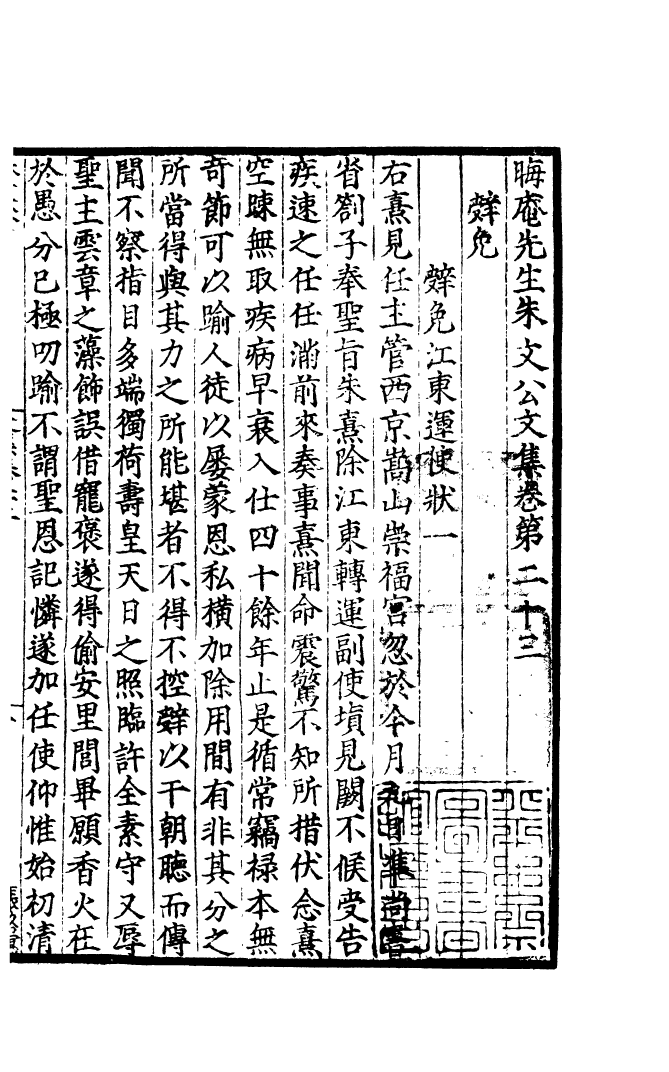 晦庵先生朱文公文集卷第二十三
辤免
辤免江東運使狀一
右熹見任主管西京嵩山崇福宮忽於今月 日準尚書
省劄子奉聖旨朱熹除江東轉運副使塡見闕不候受告
疾速之任任滿前來奏事熹聞命震驚不知所措伏念熹
空踈無取疾病早衰入仕四十餘年止是循常竊禄本無
奇節可以踰人徒以屡蒙恩私橫加除用間有非其分之
所當得與其力之所能堪者不得不控辤以干朝聽而傳
聞不察指目多端獨荷壽皇天日之照臨許全素守又辱
聖主雲章之藻飾誤借寵褒遂得偷安里閭畢願香火在
於愚分已極叨踰不謂聖恩記憐遂加任使仰惟始初清